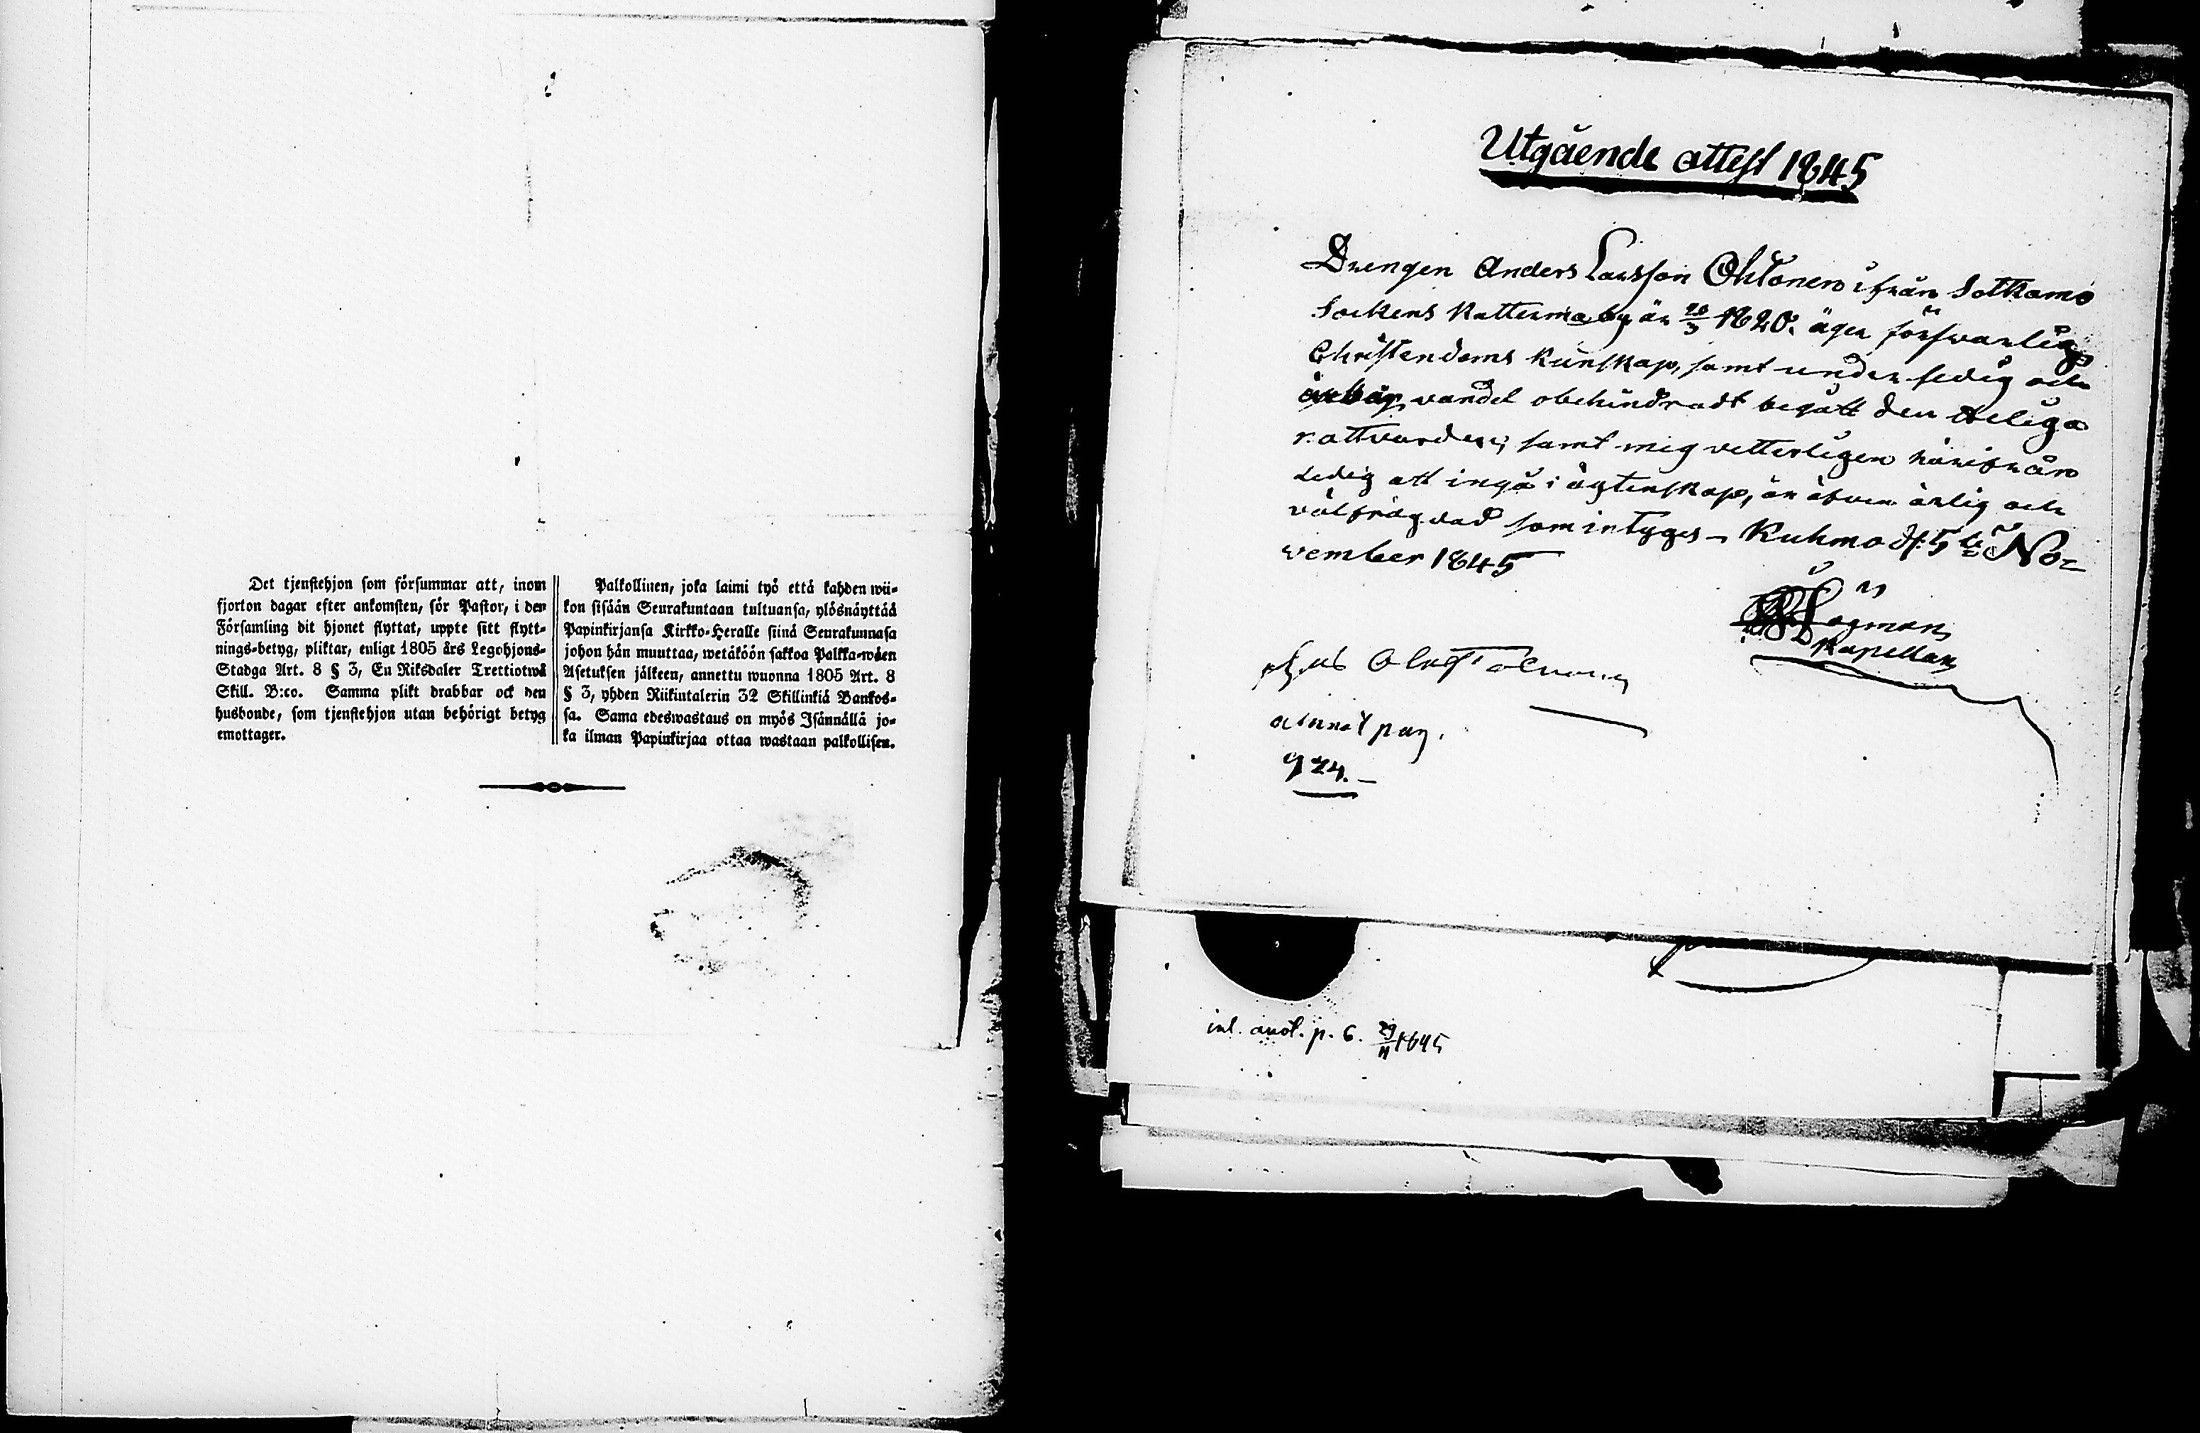 Det tjenstehjon som försummar att, inom
fjorton dagar efter ankomsten, för Pastor, i den
Församling dit hjonet flyttat, uppte sitt flytt-
nings-betyg, pliktar, enligt 1805 års Legohjons-
Stadga Art. 8 § 3, En Riksdaler Trettiotwå
Skill. B:co. Samma plikt drabbar ock den
husbonde, som tjenstehjon utan behörigt betyg
emottager.
Palkollinen, joka laimi lyö että kahden wii-
kon sisään Seurakuntaan tultuansa, ylösnäyttää
Papinkirjansa Kirkko-Heralle siinä Seurakunnasa
johon hän muuttaa, wetäköön sakkoa Palkka-wäen
Asetuksen jälkeen, annettu wuonna 1805 Art. 8
§ 3, yhden Riikintalerin 32 Skillinkiä Bankos-
sa. Sama edeswastaus on myös Isännällä jo-
ka ilman Papinkirjaa ottaa wastaan palkollisen.
Utgående attest 1845
Drengen Anders Larsson Ohtonen ifrån Sotkamo
Sockens Katterma by är 1820. äger förswarlig
Christendoms kunskap, samt under sedig och
ärbar vandel obehindradt begått den Heliga
nattvarden; samt mig vetterligen härifrån
ledig att ingå i ägtenskap, är äfven ärlig och
välfrägdad som intygas – Kuhmo d. 5te No-
vember 1845
Kapellan
annot pag.
924.
inl. anot. p. 6. 29/11 1845